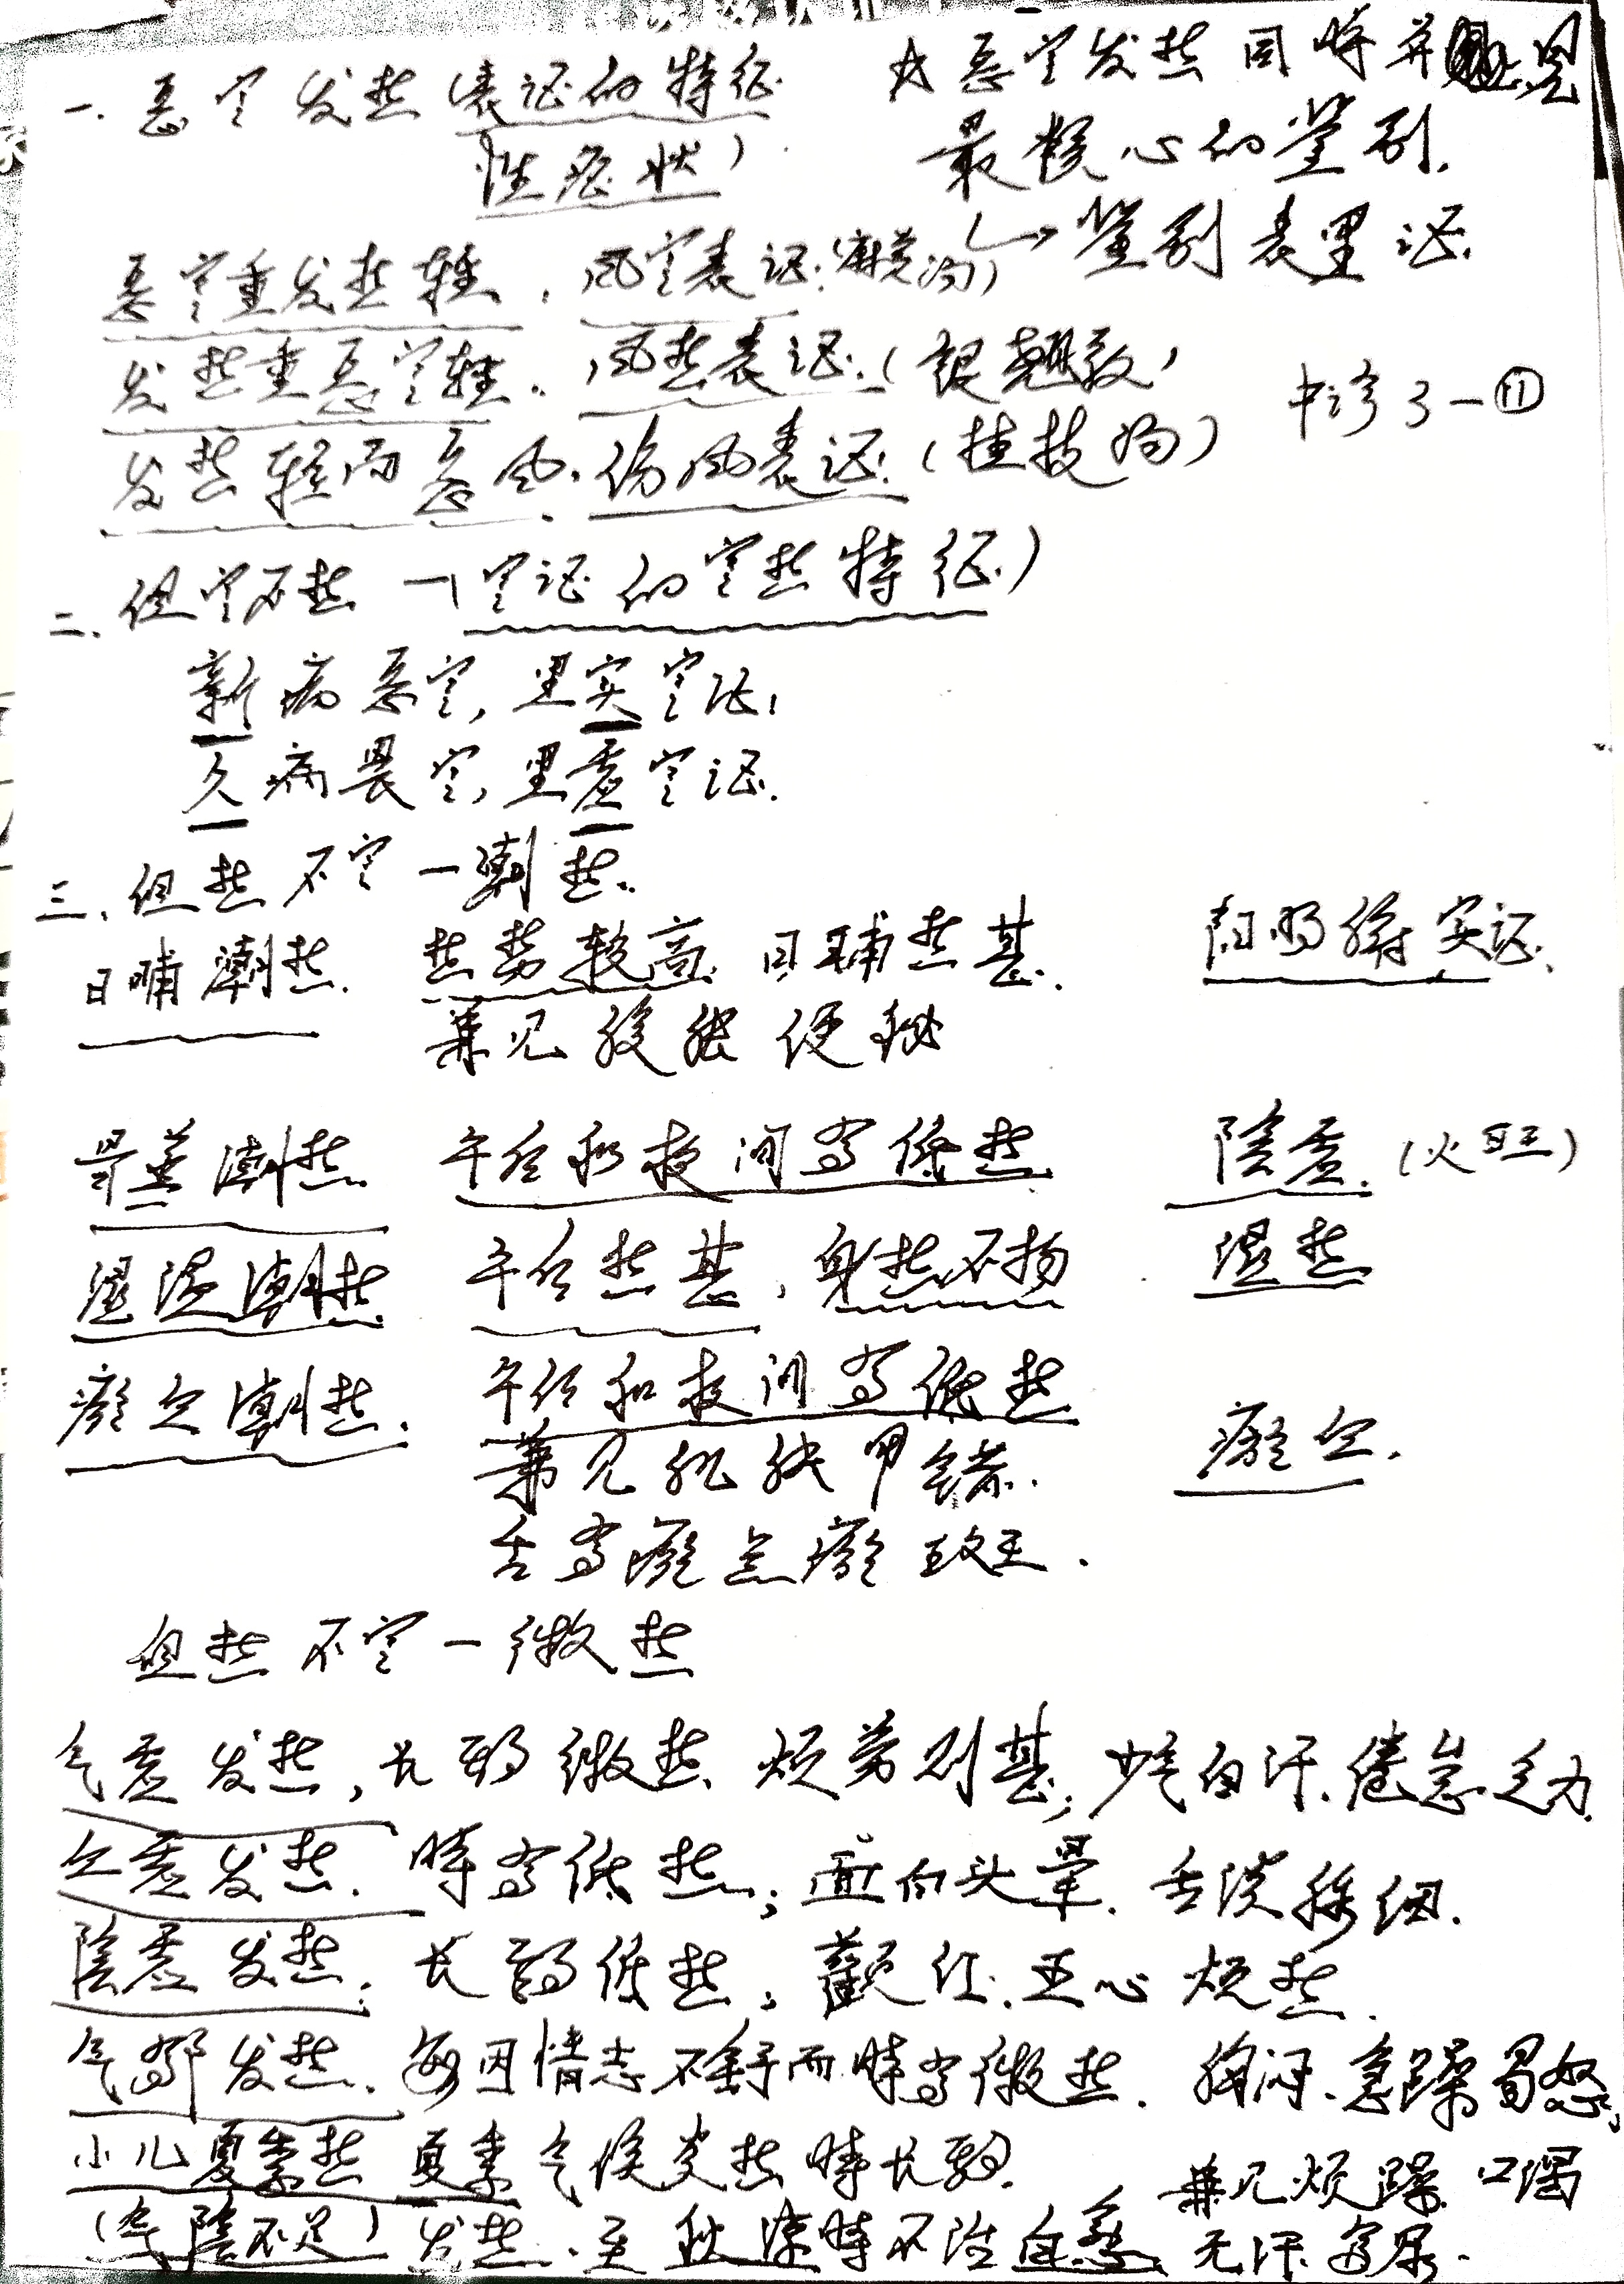 一.恶寒发热(表证的特征
性症状)
☆恶寒发热同时并见
最核心的鉴别.
↳鉴别表里证.
恶寒重发热轻.风寒表证.(麻黄汤)
发热重恶寒轻.风热表证.(银翘散)
发热轻而恶风.伤风表证.(桂枝汤)
中诊3-⑪
二.但寒不热-(寒证的寒热特征.)
新病恶寒,里实寒证,
久病畏寒,里虚寒证.
三.但热不寒-潮热.
日晡潮热. 热势较高 日晡热甚. 阳明腑实证.
兼见腹胀便秘
骨蒸潮热 午后和夜间有低热 陰虚.(火旺)
湿温潮热 午后热甚,身热不扬 湿热
瘀血潮热. 午后和夜间有低热 瘀血.
兼见肌肤甲错.
舌有瘀点瘀斑.
但热不寒-微热
气虚发热,长期微热 烦劳则甚;少气自汗.倦怠乏力.
血虚发热.时有低热;面白头晕.舌淡脉细.
陰虚发热.长期低热;颧红.五心烦热.
气郁发热.每因情志不舒而时有微热.胸闷.急躁易怒,
小儿夏季热 夏季气候炎热时长期
(气陰不足)发热.至秋凉时不治自愈
兼见烦躁 口渴
无汗.多尿.